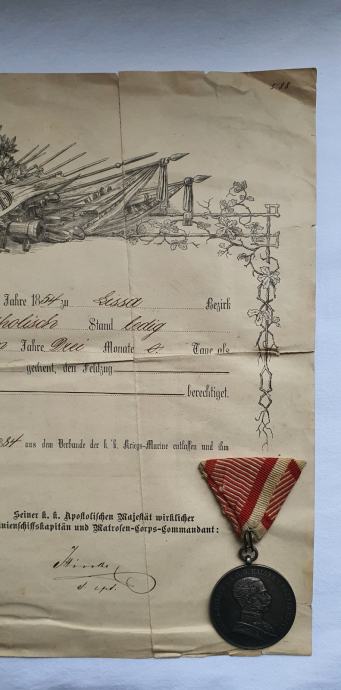 588
Jahre 1854 zu Lissa Bezirk
holisch Stand ledig
Jahre Drei Monate 0. Tage als
gedient, den Feldzug
berechtiget.
84 aus dem Verbande der k. k. Kriegs-Marine entlassen und ihm
Seiner k. k. Apostolischen Majestät wirklicher
inienschiffskapitän und Matrosen-Corps-Commandant: